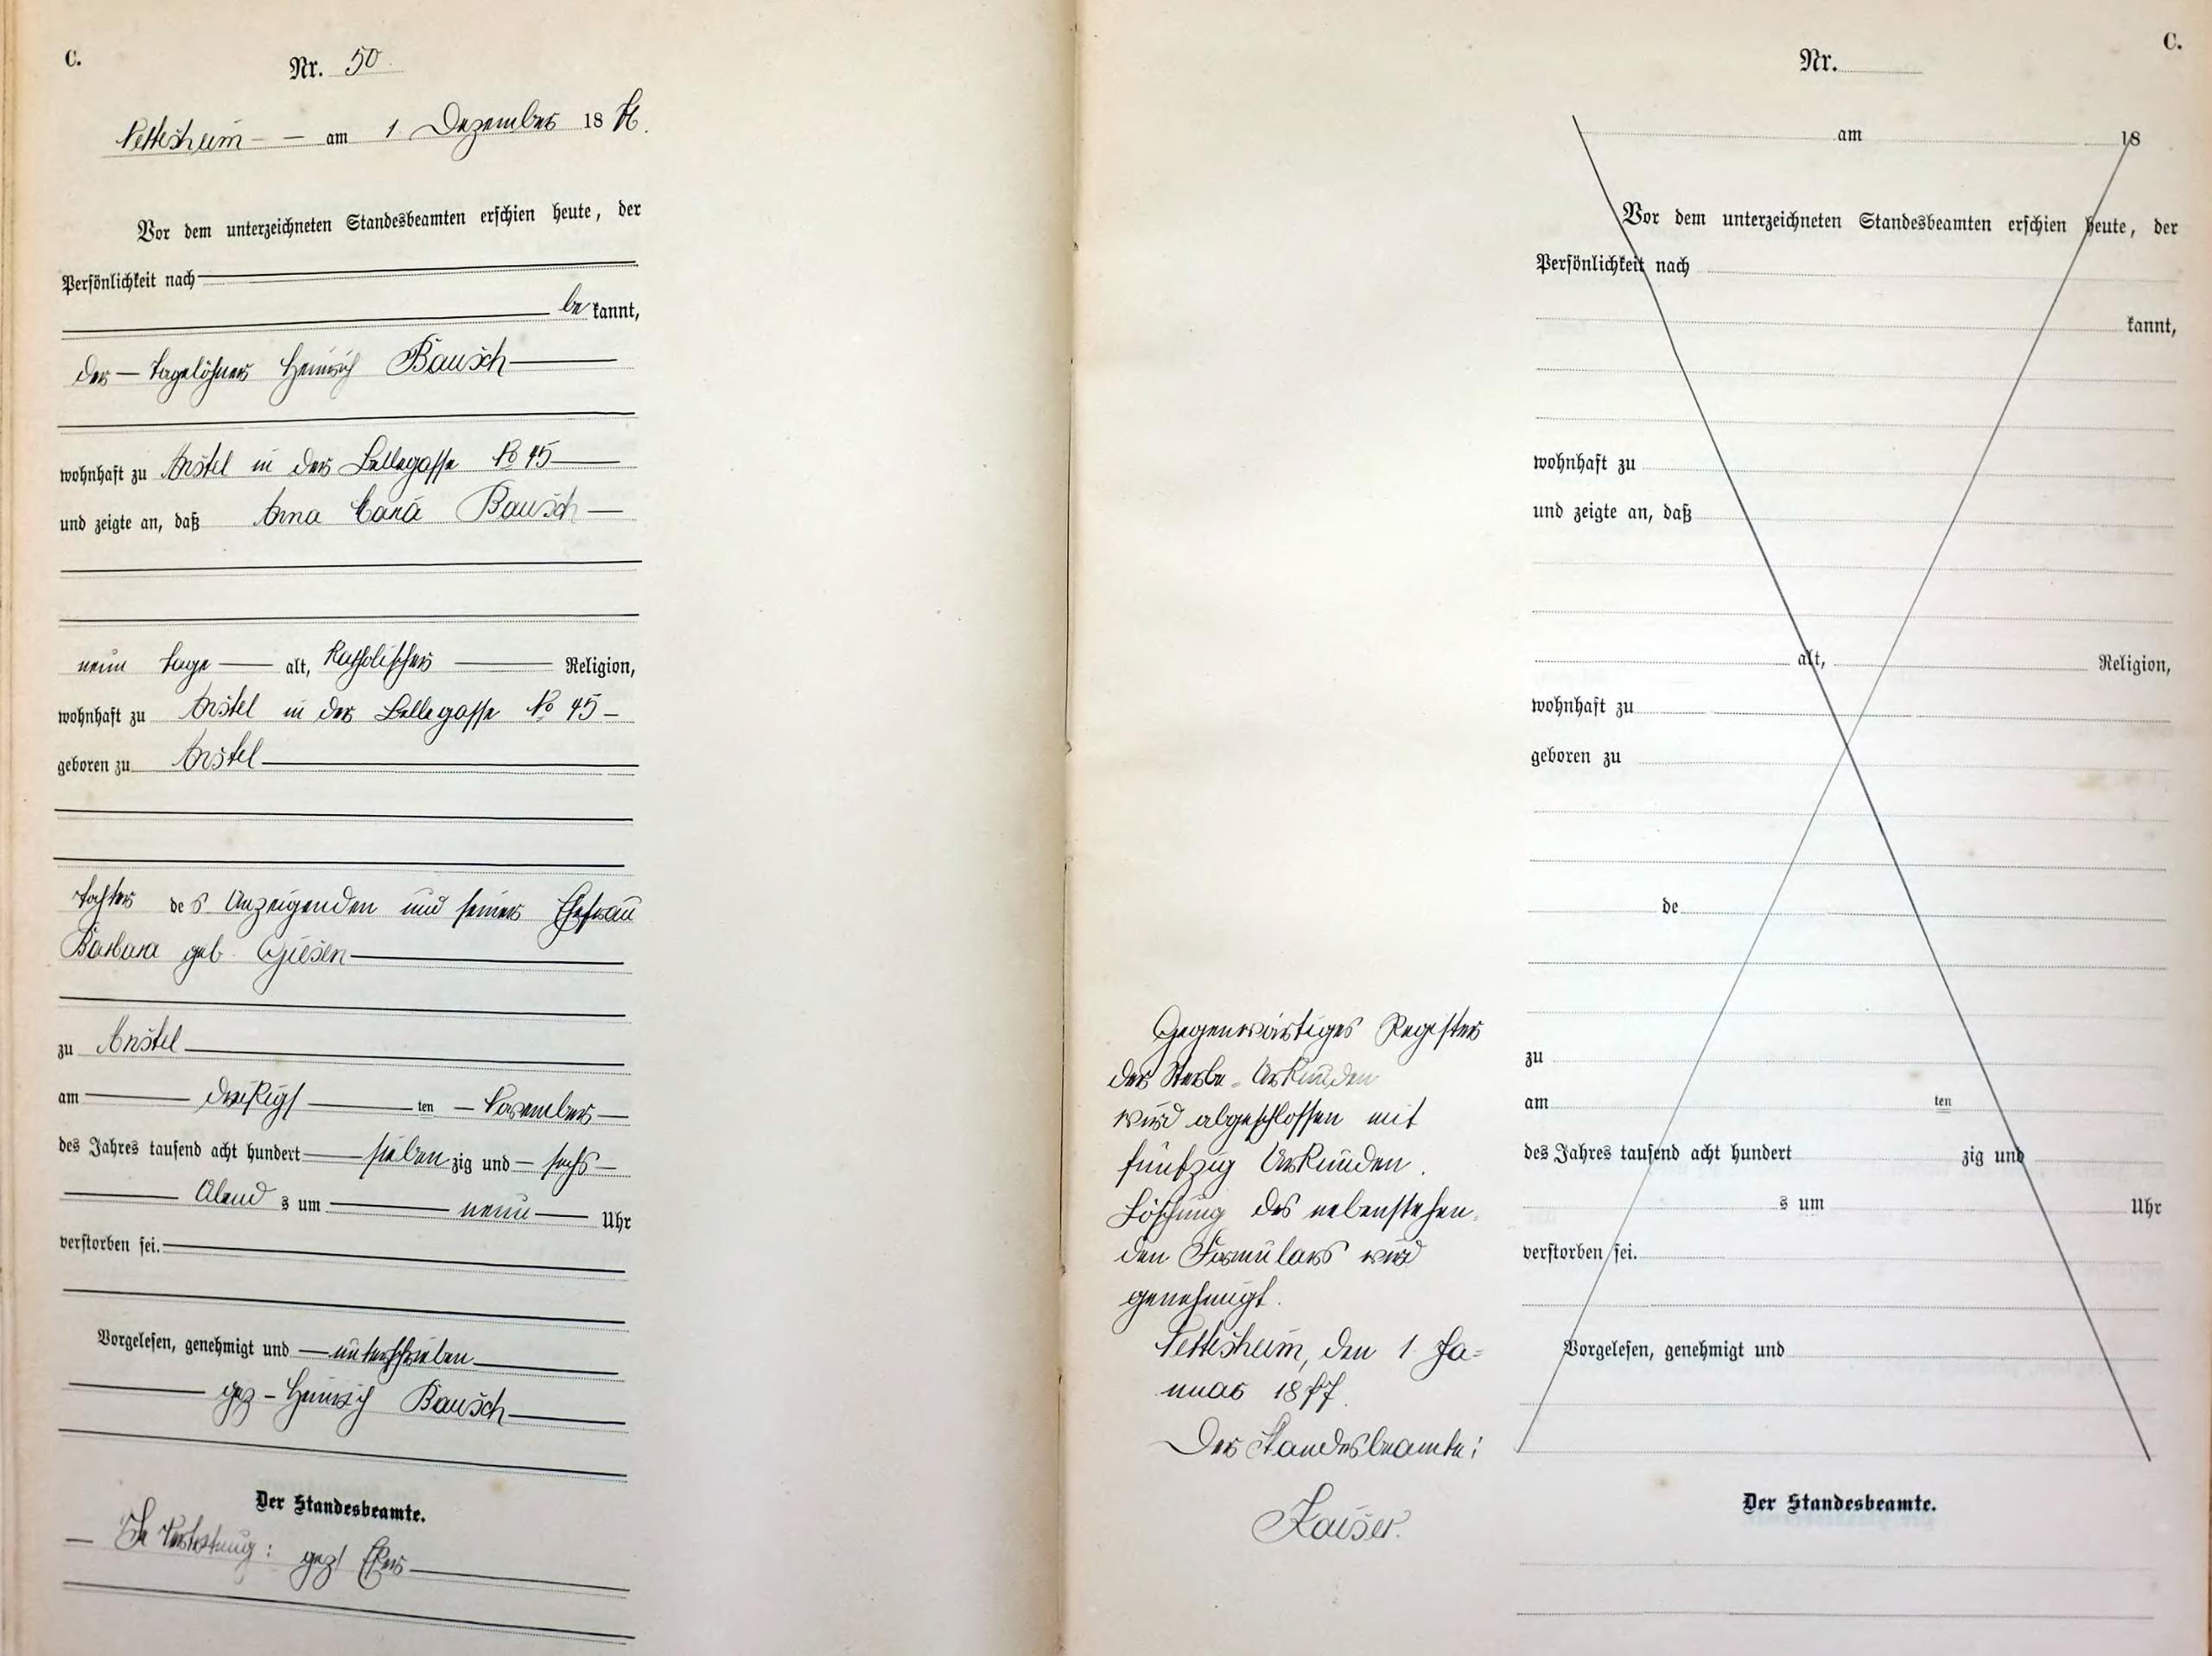 C.
Nr. 50.
Nettesheim am 1 Dezember 1876.
Vor dem unterzeichneten Standesbeamten erschien heute, der
Persönlichkeit nach
bekannt,
der Tagelöhner Heinrich Bausch
wohnhaft zu Anstel in der Bellegasse No 45
und zeigte an, daß Anna Maria Bausch
neun Tage alt, katholischer Religion,
wohnhaft zu Anstel in der Bellegasse No 45
geboren zu Anstel
Tochter des Anzeigenden und seiner Ehefrau
Barbara geb. Giesen
zu Anstel
am dreißigsten November
des Jahres tausend acht hundert siebenzig und sechs
Abends um neun Uhr
verstorben sei.
Vorgelesen, genehmigt und unterschrieben
gez. Heinrich Bausch
Der Standesbeamte.
In Vertretung: gez. Esser
Gegenwärtiges Register
der Sterbe-Urkunden
wird abgeschlossen mit
fünfzig Urkunden.
Löschung des nebenstehen-
den Formulars wird
genehmigt.
Nettesheim, den 1. Ja=
nuar 1877.
Der Standesbeamte:
Kaiser.
C.
Nr.
am 18
Vor dem unterzeichneten Standesbeamten erschien heute, der
Persönlichkeit nach
kannt,
wohnhaft zu
und zeigte an, daß
alt, Religion,
wohnhaft zu
geboren zu
de
zu
am ten
des Jahres tausend acht hundert zig und
s um Uhr
verstorben sei.
Vorgelesen, genehmigt und
Der Standesbeamte.